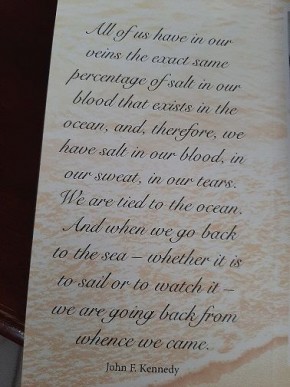 All of us have in our
veins the exact same
percentage of salt in our
blood that exists in the
ocean, and, therefore, we
have salt in our blood, in
our sweat, in our tears.
We are tied to the ocean.
And when we go back
to the sea – whether it is
to sail or to watch it –
we are going back from
whence we came.
John F. Kennedy